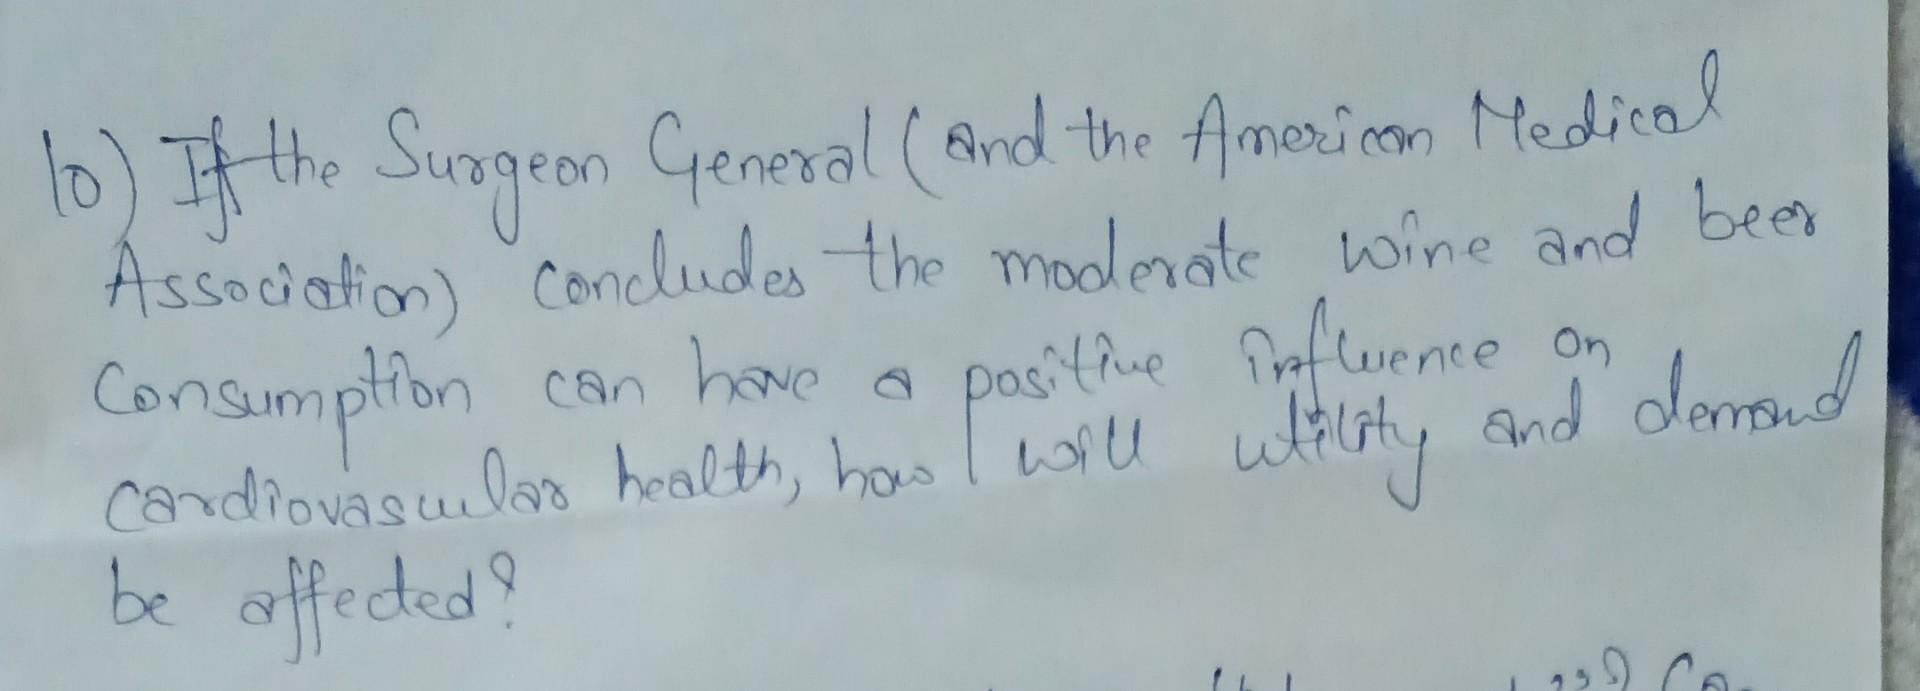 10) If the Surgeon General (and the American Medical
Association) concludes the moderate wine and beer
Consumption can have a positive influence on
cardiovascular health, how will utility and demand
be affected?